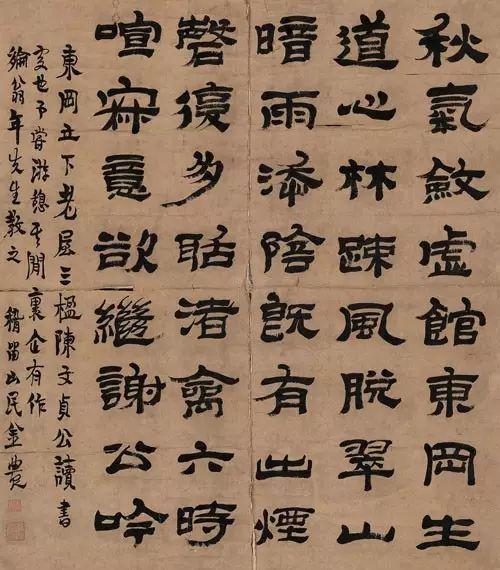 秋氣斂虛館東岡生
道心林疎風脫翠山
暗雨添陰既有出煙
磬復多聒渚禽六時
喧寂意欲繼謝公吟
東岡下老屋三楹陳文貞公讀書
處也予嘗游憩其間企有作
綸翁年先生教之 稽留山民金農